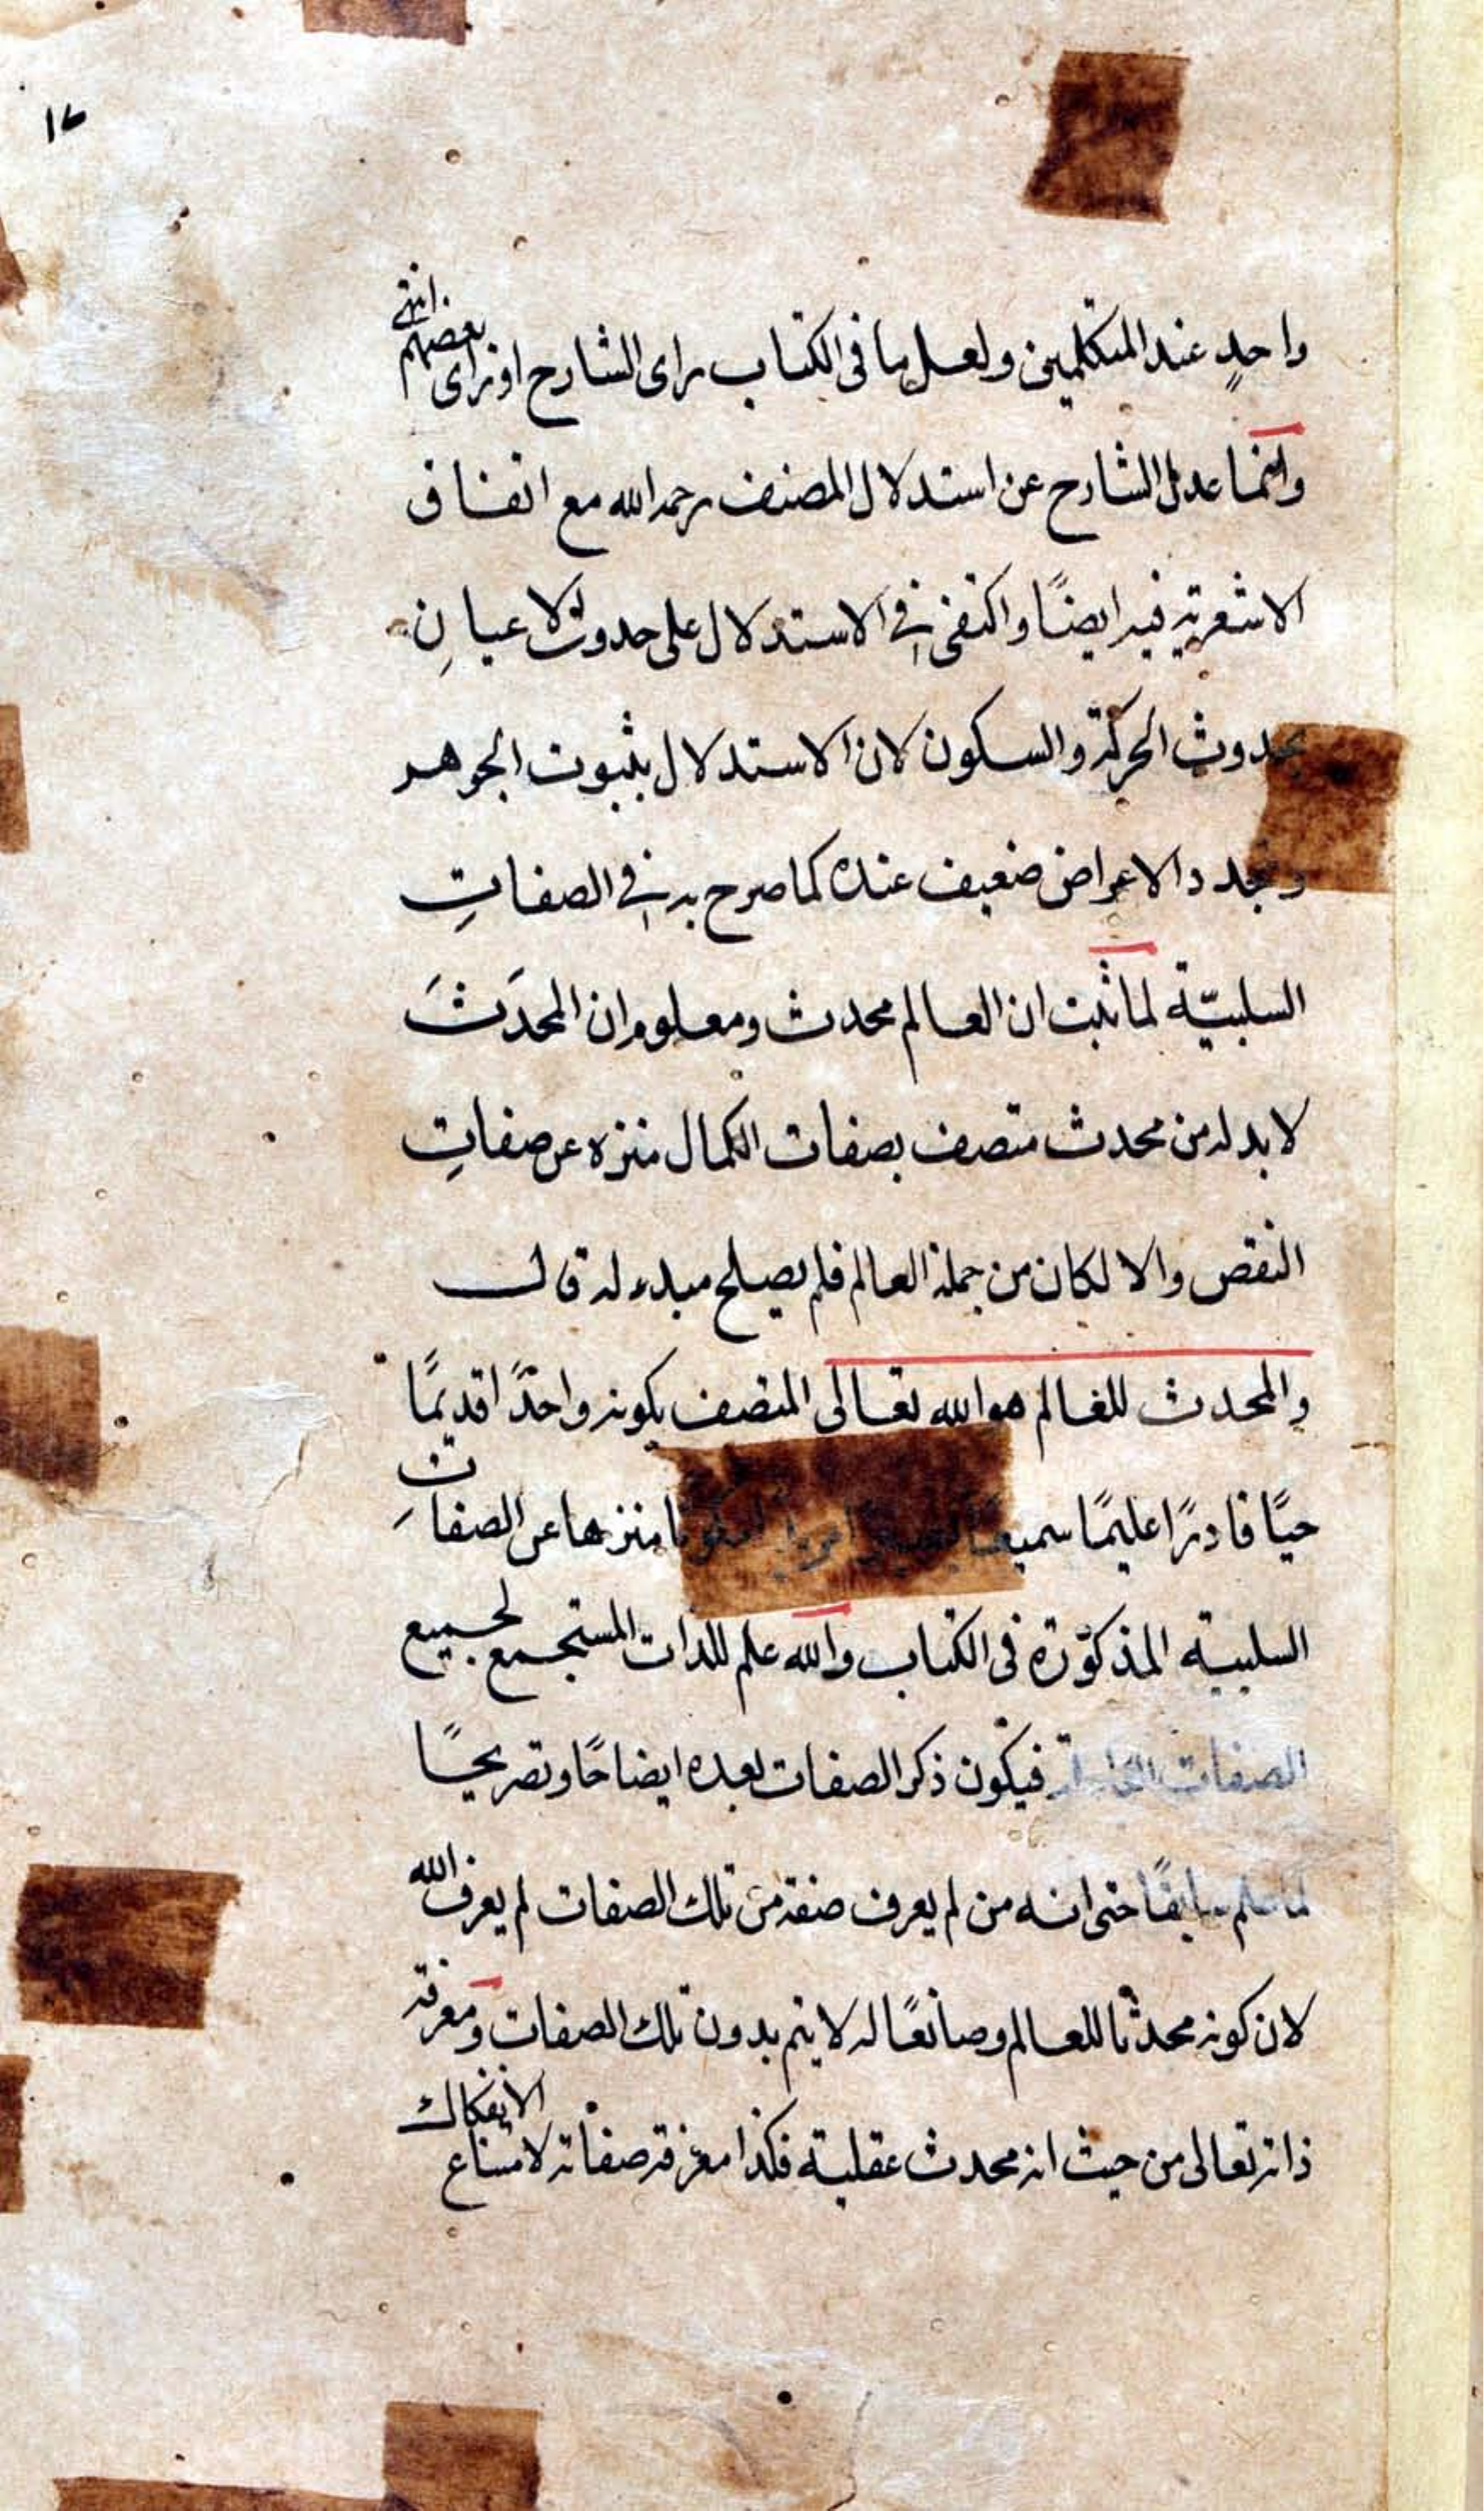 ١٦
واحدٍ عند المتكلمين ولعل ما فى الكتاب راى الشارح او راى بعضهم انتهى
وانما عدل الشارح عن استدلال المصنف رحمه الله مع اتفاق
الاشعرية فيه ايضًا واكتفى فى الاستدلال على حدوث الاعيانِ
بحدوث الحركة والسكون لان الاستدلال بثبوت الجوهر
وتجدد الاعراض ضعيف عنده كما صرح به فى الصفاتِ
السلبيّة لما ثبت ان العالم محدث ومعلوم ان المحدَثَ
لا بد له من محدث متصف بصفات الكمال منزه عن صفاتِ
النقص والا لكان من جملة العالم فلم يصلح مبدء له قال
والمحدث للعالم هو الله تعالى المتصف بكونه واحدًا قديمًا
حيًا قادرًا عليمًا سميعا منزها عن الصفات
السلبية المذكورة فى الكتاب والله علم للذات المستجمع لجميع
الصفات فيكون ذكر الصفات بعده ايضاحًا وتصريحًا
لما علم سابقًا حتى انه من لم يعرف صفة من تلك الصفات لم يعرف الله
لان كونه محدثا للعالم وصانعًا له لا يتم بدون تلك الصفات ومعرفة
ذاته تعالى من حيث انه محدث عقلية فكذا معرفة صفاته لامتناع الانفكاك